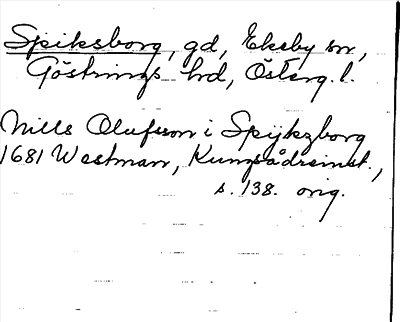 Spiksborg, gd, Ekeby sn,
Göstrings hd, Österg. l.
Nills Olufsson i Spijkzborg
1681 Westman, Kungsådreinst.,
s. 138. orig.